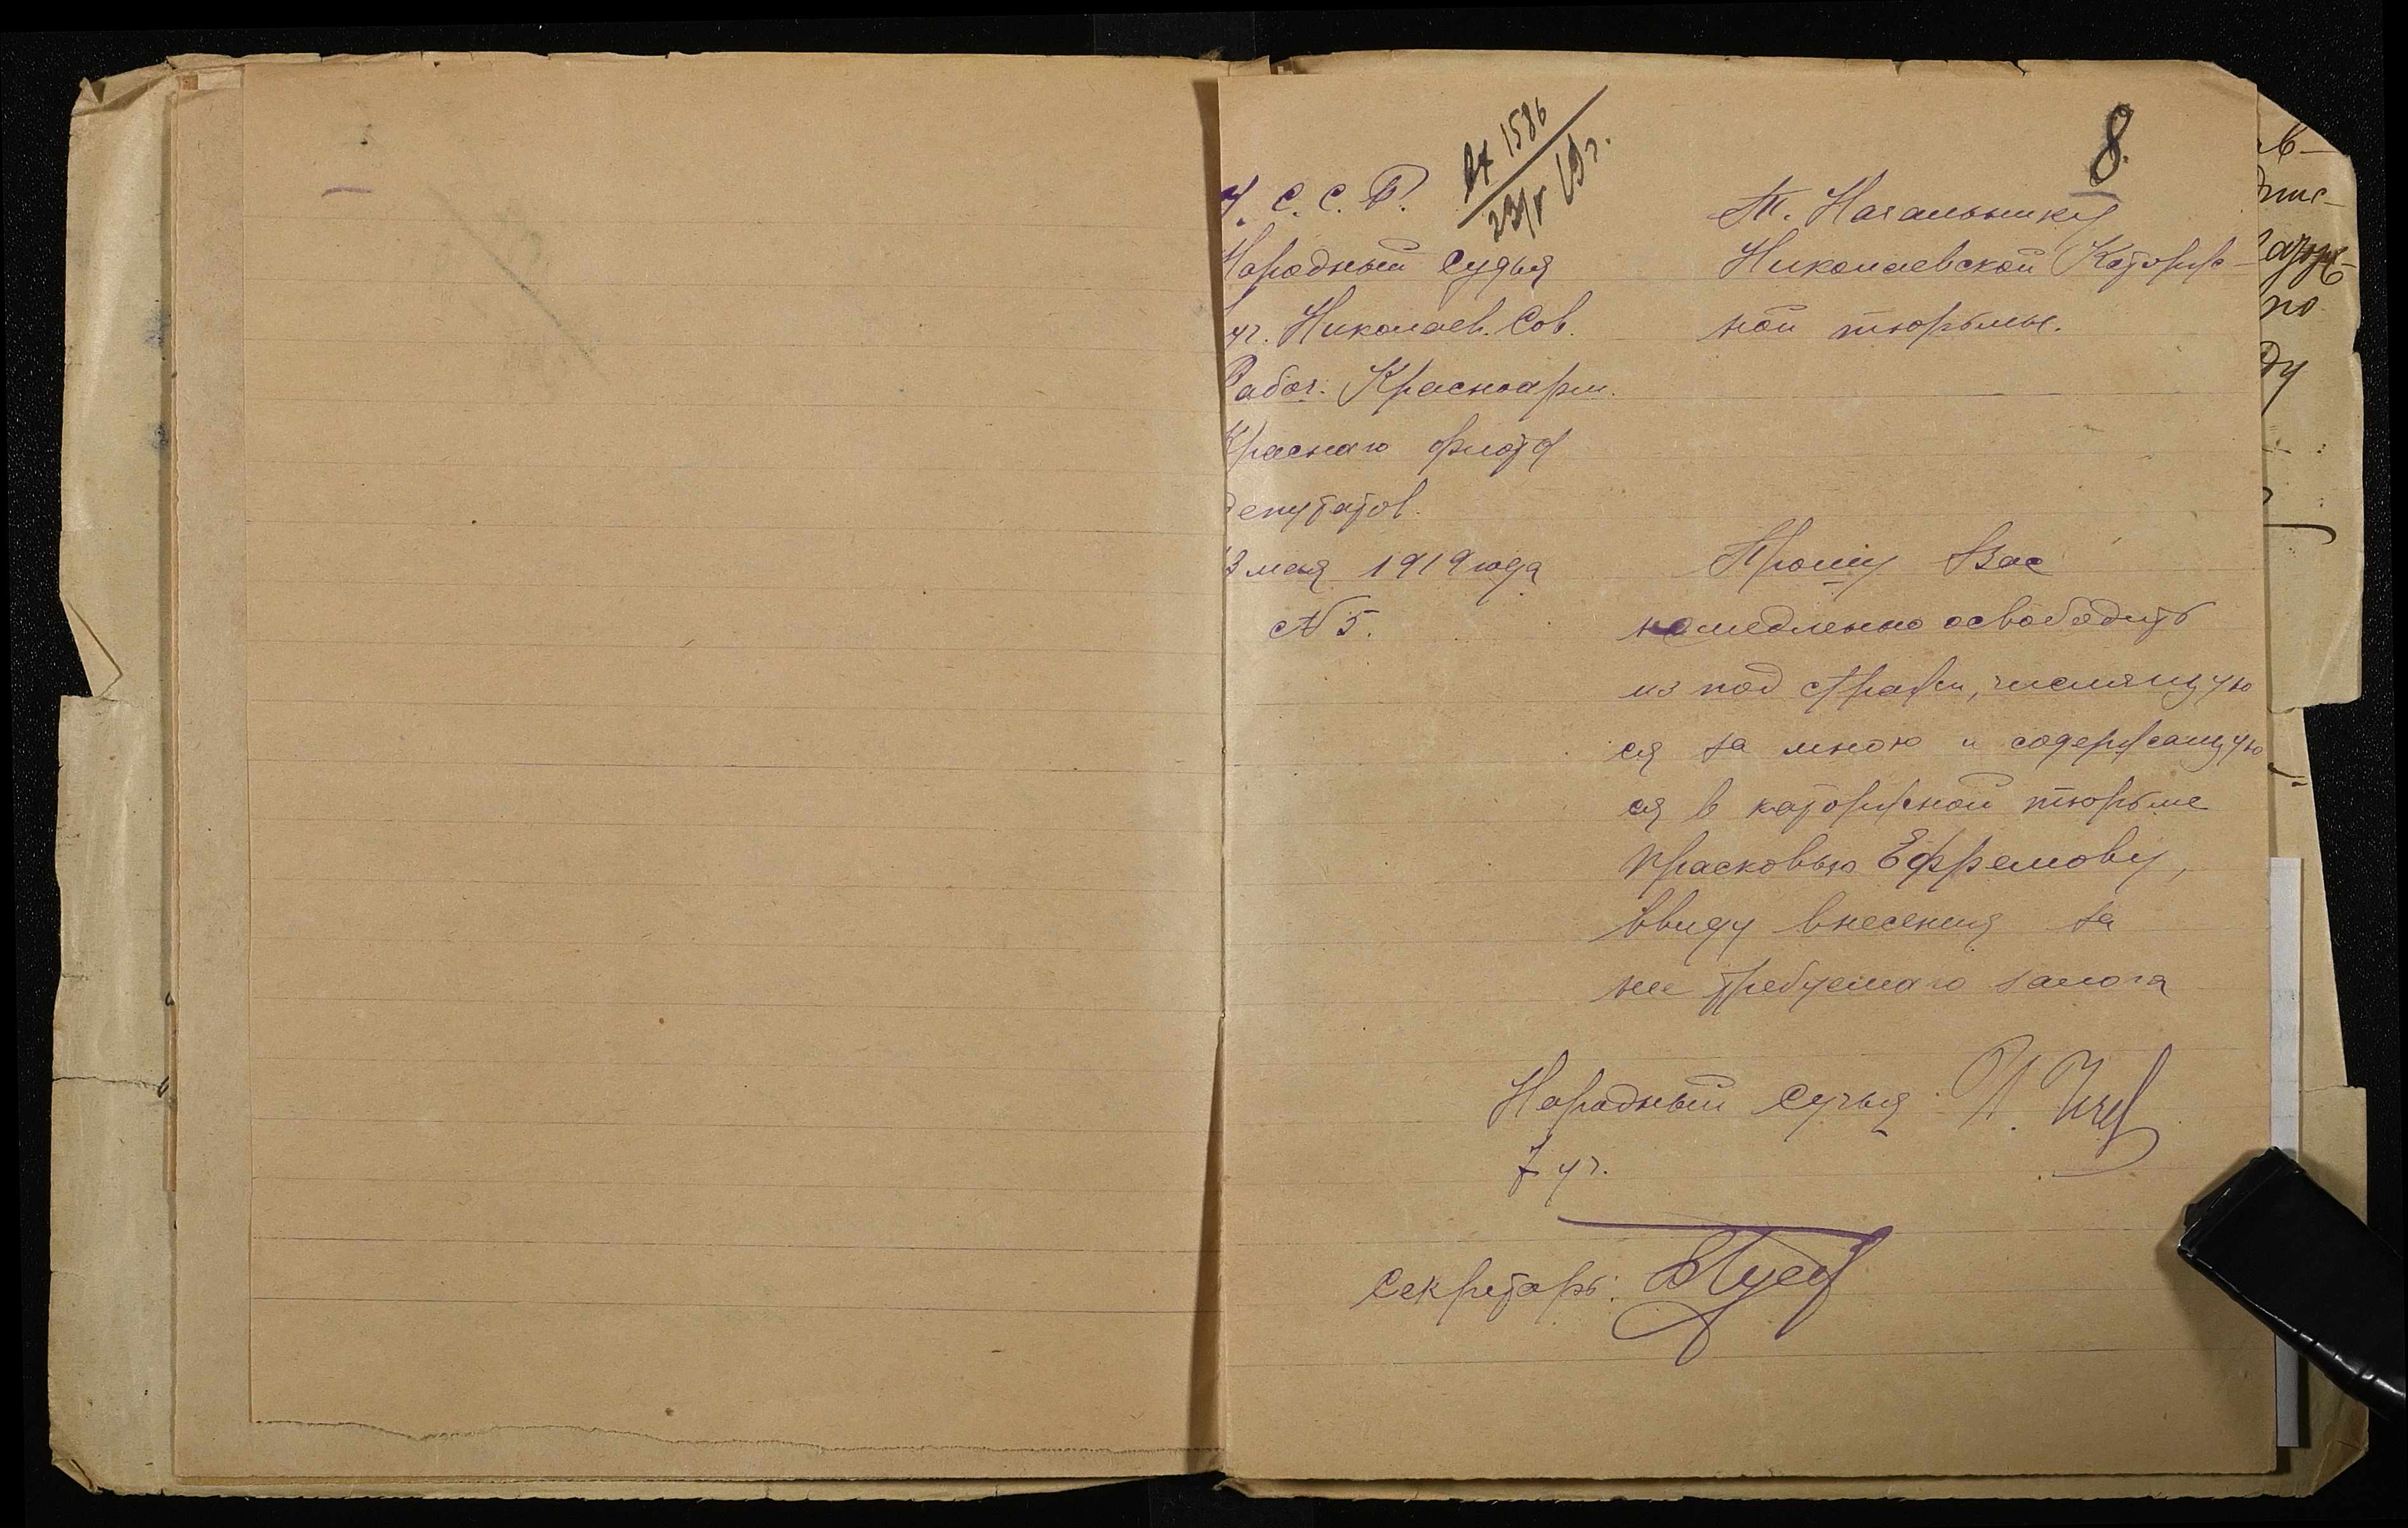 8.
Вх 1586
23/V 19 г.
У. С. С. Р.
Народный Судья
уч. Николаев. Сов.
Рабоч. Красноарм.
Краснаго флота
депутатов.
3 мая 1919 года
N 5.
Т. Начальнику
Николаевской Каторж-
ной тюрьмы.
Прошу Вас
немедленно освободить
из под стражи, числящую
ся за мною и содержащую
ся в каторжной тюрьме
Прасковью Ефремову,
ввиду внесения за
нее требуемаго залога
Народный Судья
7 уч.
Секретарь: